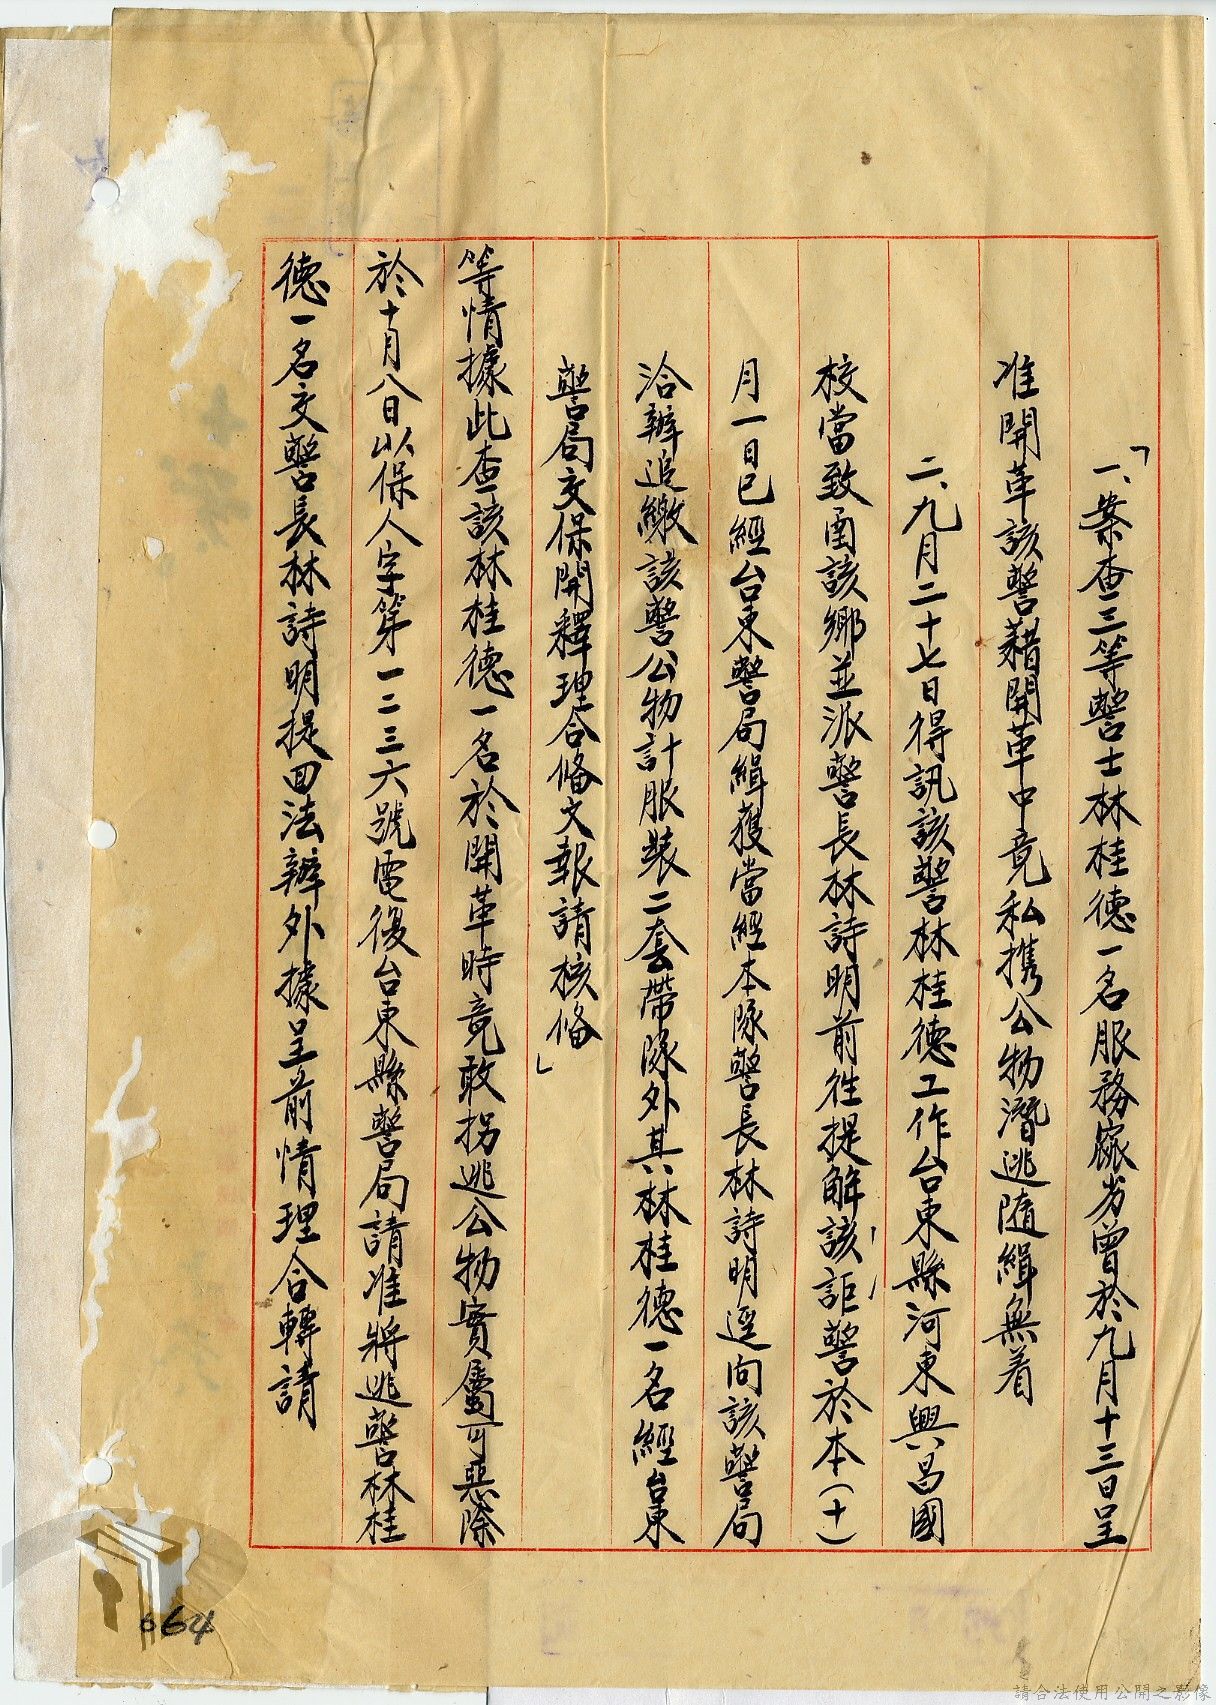 「一、案查三等警士林桂德一名服務窳劣曾於九月十三日呈
准開革該警藉開革中竟私携公物潛逃隨緝無着
二、九月二十七日得訊該警林桂德工作台東縣河東興昌國
校當致函該鄉並派警長林詩明前往提解該詎警於本(十)
月一日已經台東警局緝獲當經本隊警長林詩明逕向該警局
洽辦追繳該警公物計服裝二套帶隊外其林桂德一名經台東
警局交保開釋理合備文報請核備」
等情據此查該林桂德一名於開革時竟敢拐逃公物實屬可惡除
於十月八日以保人字第一二三六號電復台東縣警局請准將逃警林桂
德一名交警長林詩明提回法辦外據呈前情理合轉請
064
請合法使用公開之影像